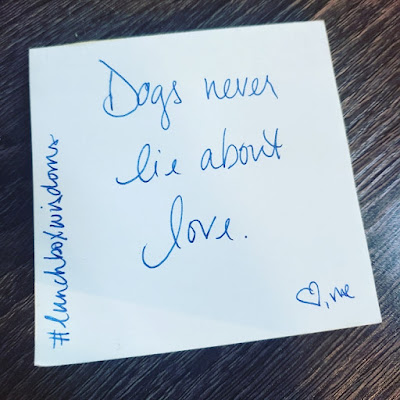 Dogs never
lie about
love.
♡, me
#lunchboxwisdoms